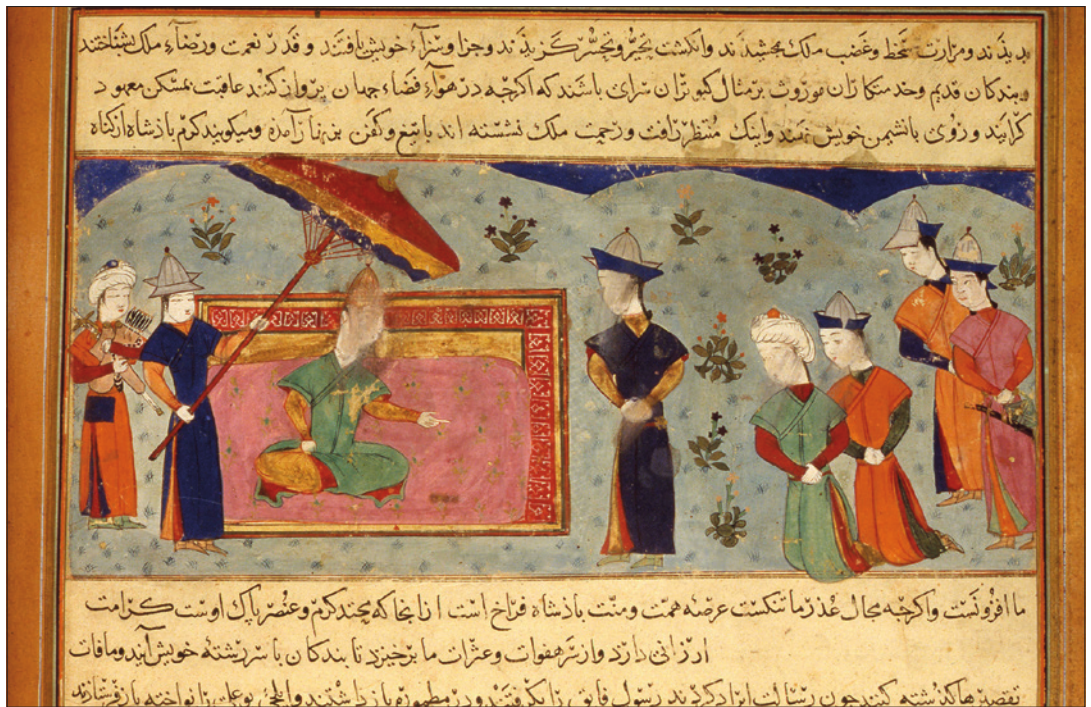 دیدند ومرارت سخط وغضب ملک بچشیدند وانکشت تحیر وتحسر کزیدند وجزا وسزآء خویش یافتند و قدر نعمت ورضآء ملک بشناختند
و بندکان قدیم وخدمتکاران موروث بر مثال کبوتران سرای باشند که اکرچه در هوآء فضاء جهان پرواز کنند عاقبت بمسکن معهود
کرایند و روی با نشیمن خویش نهند واینک منتظر رافت ورحمت ملک نشسته اند با تیغ و کفن بزنهار آمده ومیکویند کرم باذشاه از کناه
ما افزونست واکرچه مجال عذر ما تنکست عرصه همت ومنت باذشاه فراخ است از انجا که محتد کرم وعنصر پاک اوست کرامت
ارزانی دارد واز سر هفوات وعثرات ما برخیزد تا بندکان با سر رشته خویش آیند ومافات
تقصیرها کذشته کنند چون رسالت ایراد کردند رسول فایق را بکرفتند ودر مطموره باز داشتند وایلچی بوعلی را نواخته باز